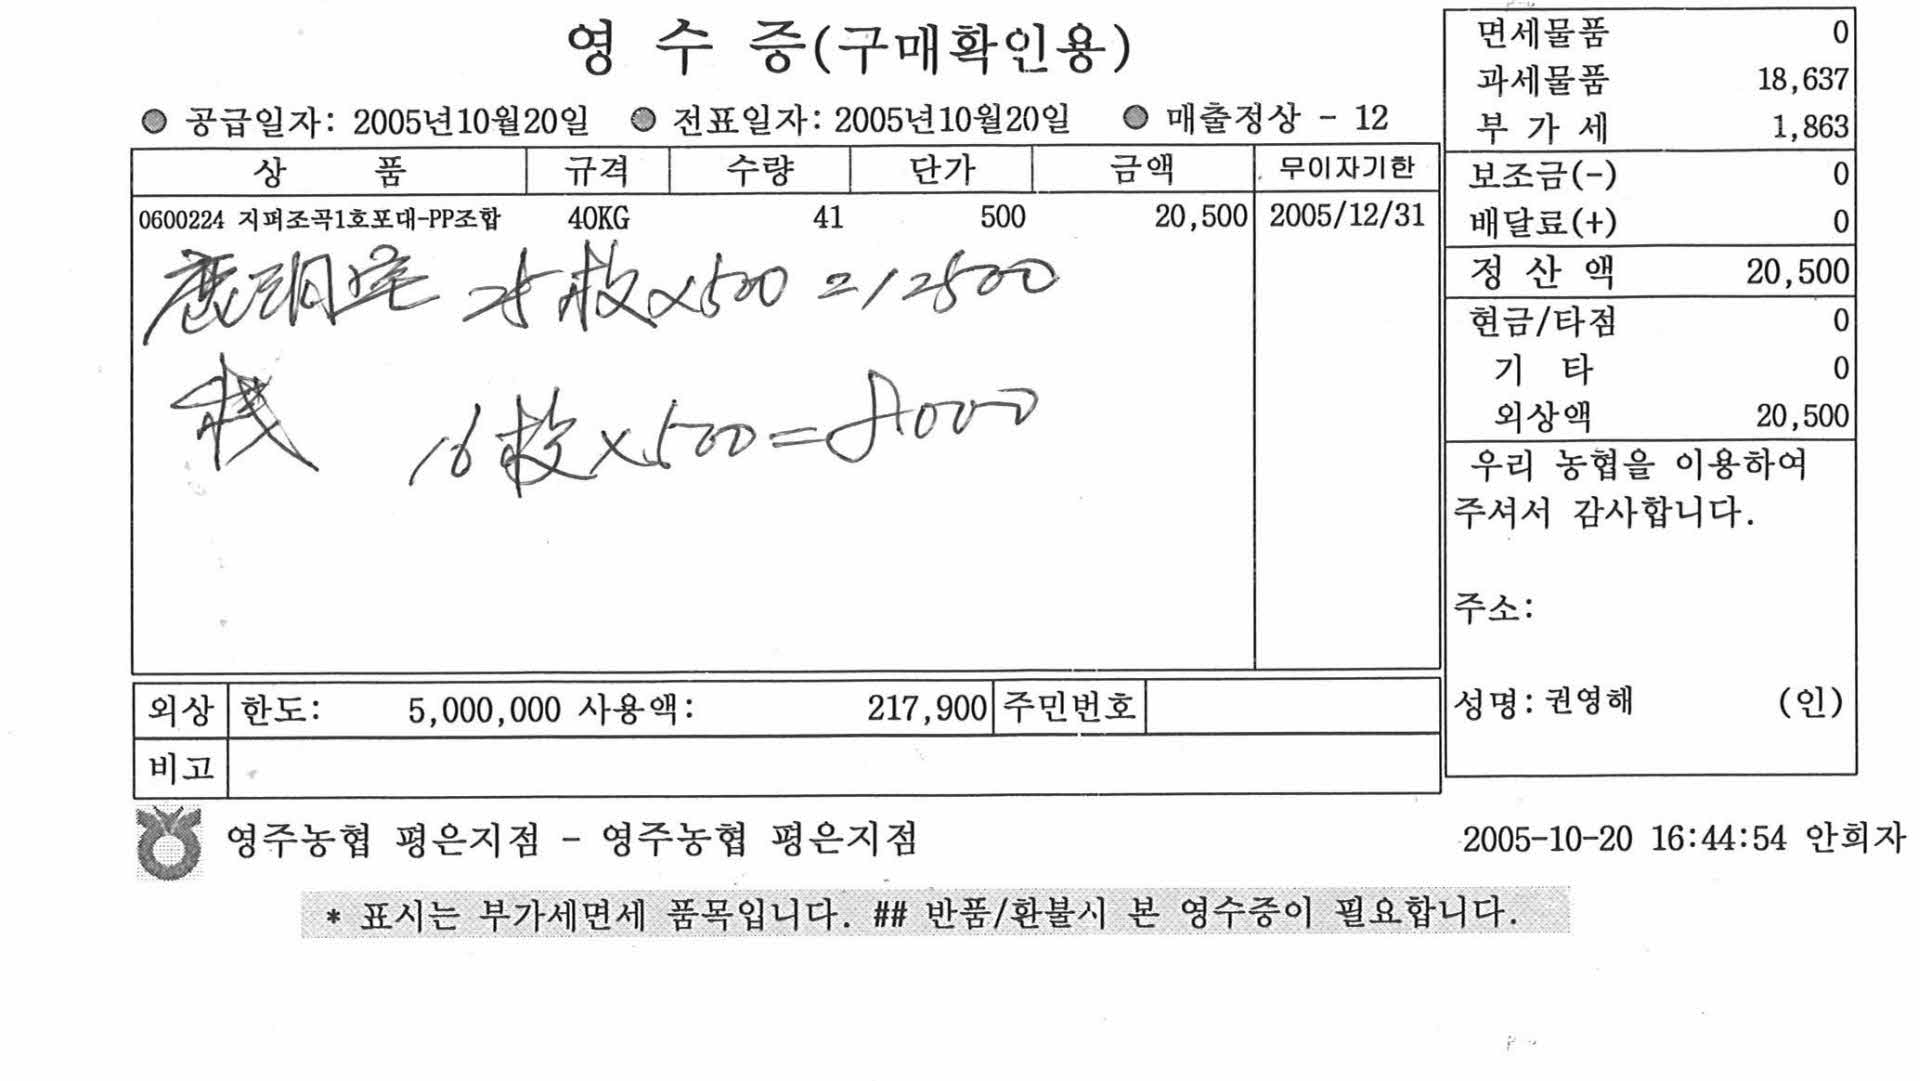 영 수 증(구매확인용)
공급일자: 2005년10월20일 전표일자: 2005년10월20일 매출정상 - 12
상 품 규격 수량 단가 금액 무이자기한
0600224 지퍼조곡1호포대-PP조합 40KG 41 500 20,500 2005/12/31
枚×500=12500
16枚×500=8000
외상 한도: 5,000,000 사용액: 217,900 주민번호
비고
면세물품 0
과세물품 18,637
부 가 세 1,863
보조금(-) 0
배달료(+) 0
정 산 액 20,500
현금/타점 0
기 타 0
외상액 20,500
우리 농협을 이용하여
주셔서 감사합니다.
주소:
성명: 권영해 (인)
영주농협 평은지점 - 영주농협 평은지점
2005-10-20 16:44:54 안희자
* 표시는 부가세면세 품목입니다. ## 반품/환불시 본 영수증이 필요합니다.